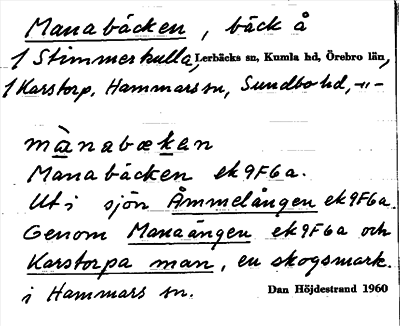 Manabäcken, bäck å
1 Stimmerhulla, Lerbäcks sn, Kumla hd, Örebro län,
1 Karstorp, Hammars sn, Sundbo hd, -"-
mànabækan
Manabäcken ek 9F6a.
Ut i sjön Åmmelången ek 9F6a.
Genom Manaängen ek 9F6a och
Karstorpa man, en skogsmark.
i Hammars sn.
Dan Höjdestrand 1960